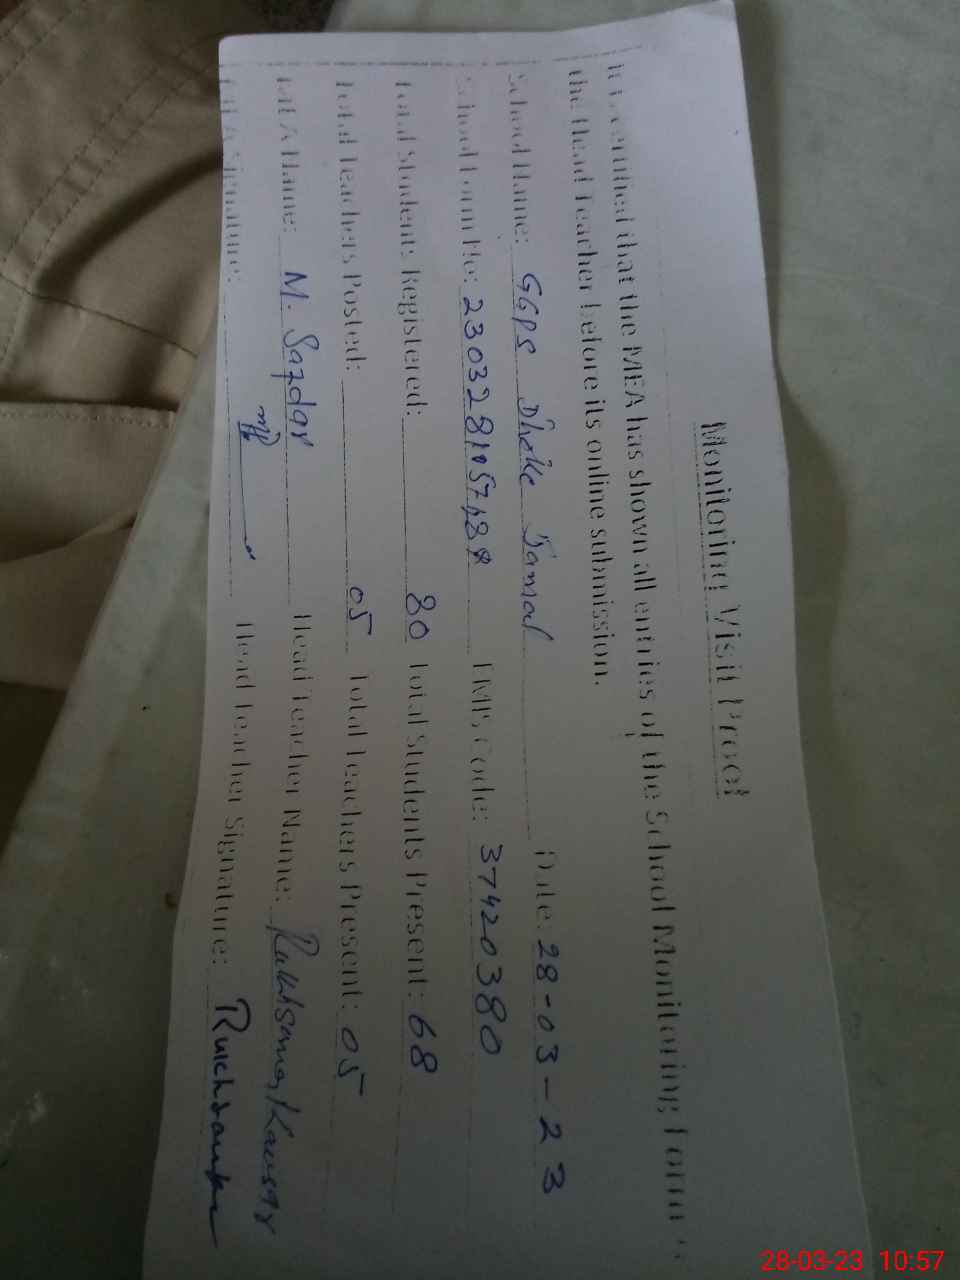 Monitoring Visit Proof
It is certified that the MEA has shown all entries of the School Monitoring Form to
the Head Teacher before its online submission.
School Name: GGPS Dhoke Jamal Date: 28-03-23
School Form No: EMIS Code: 37420380
Total Students Registered: 80 Total Students Present: 68
Total Teachers Posted: 05 Total Teachers Present: 05
MEA Name: M. Safdar Head Teacher Name: Rukhsana Kausar
MEA Signature: Head Teacher Signature:
28-03-23 10:57